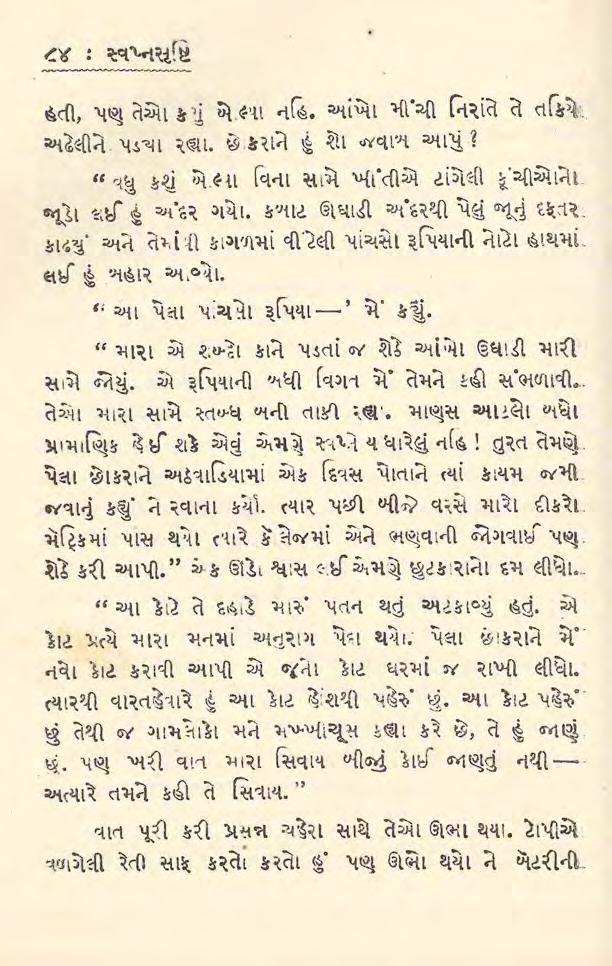 ૮૪ : સ્વપ્નસૃષ્ટિ
હતી, પણ તેઓ કશું બોલ્યા નહિ. આંખો મીંચી નિરાંતે તે તકિયે
અઢેલીને પડ્યા રહ્યા. છોકરાને હું શો જવાબ આપું ?
“ વધુ કશું બોલ્યા વિના સામે ખીંતીએ ટાંગેલી કૂંચીઓનો
જૂડો લઈ હું અંદર ગયો. કબાટ ઊઘાડી અંદરથી પેલું જૂનું દફતર
કાઢ્યું અને તેમાંથી કાગળમાં વીંટેલી પાંચસો રૂપિયાની નોટો હાથમાં
લઈ હું બહાર આવ્યો.
“ આ પેલા પાંચસો રૂપિયા—’ મેં કહ્યું.
“ મારા એ શબ્દો કાને પડતાં જ શેઠે આંખો ઉઘાડી મારી
સામે જોયું. એ રૂપિયાની બધી વિગત મેં તેમને કહી સંભળાવી.
તેઓ મારા સામે સ્તબ્ધ બની તાકી રહ્યા. માણસ આટલો બધો
પ્રામાણિક હોઈ શકે એવું એમણે સ્વપ્ને ય ધારેલું નહિ ! તુરત તેમણે
પેલા છોકરાને અઠવાડિયામાં એક દિવસ પોતાને ત્યાં કાયમ જમી
જવાનું કહ્યું ને રવાના કર્યો. ત્યાર પછી બીજે વરસે મારો દીકરો
મૅટ્રિકમાં પાસ થયો ત્યારે કૉલેજમાં એને ભણવાની જોગવાઈ પણ
શેઠે કરી આપી.” એક ઊંડો શ્વાસ લઈ એમણે છુટકારાનો દમ લીધો.
“ આ કોટે તે દહાડે મારું પતન થતું અટકાવ્યું હતું. એ
કોટ પ્રત્યે મારા મનમાં અનુરાગ પેદા થયો. પેલા છોકરાને મેં
નવો કોટ કરાવી આપી એ જૂનો કોટ ઘરમાં જ રાખી લીધો.
ત્યારથી વારતહેવારે હું આ કોટ હોંશથી પહેરું છું. આ કોટ પહેરું
છું તેથી જ ગામલોકો મને મખ્ખીચૂસ કહ્યા કરે છે, તે હું જાણું
છું. પણ ખરી વાત મારા સિવાય બીજું કોઈ જાણતું નથી —
અત્યારે તમને કહી તે સિવાય.”
વાત પૂરી કરી પ્રસન્ન ચહેરા સાથે તેઓ ઊભા થયા. ટોપીએ
વળગેલી રેતી સાફ કરતો કરતો હું પણ ઊભો થયો ને બૅટરીની